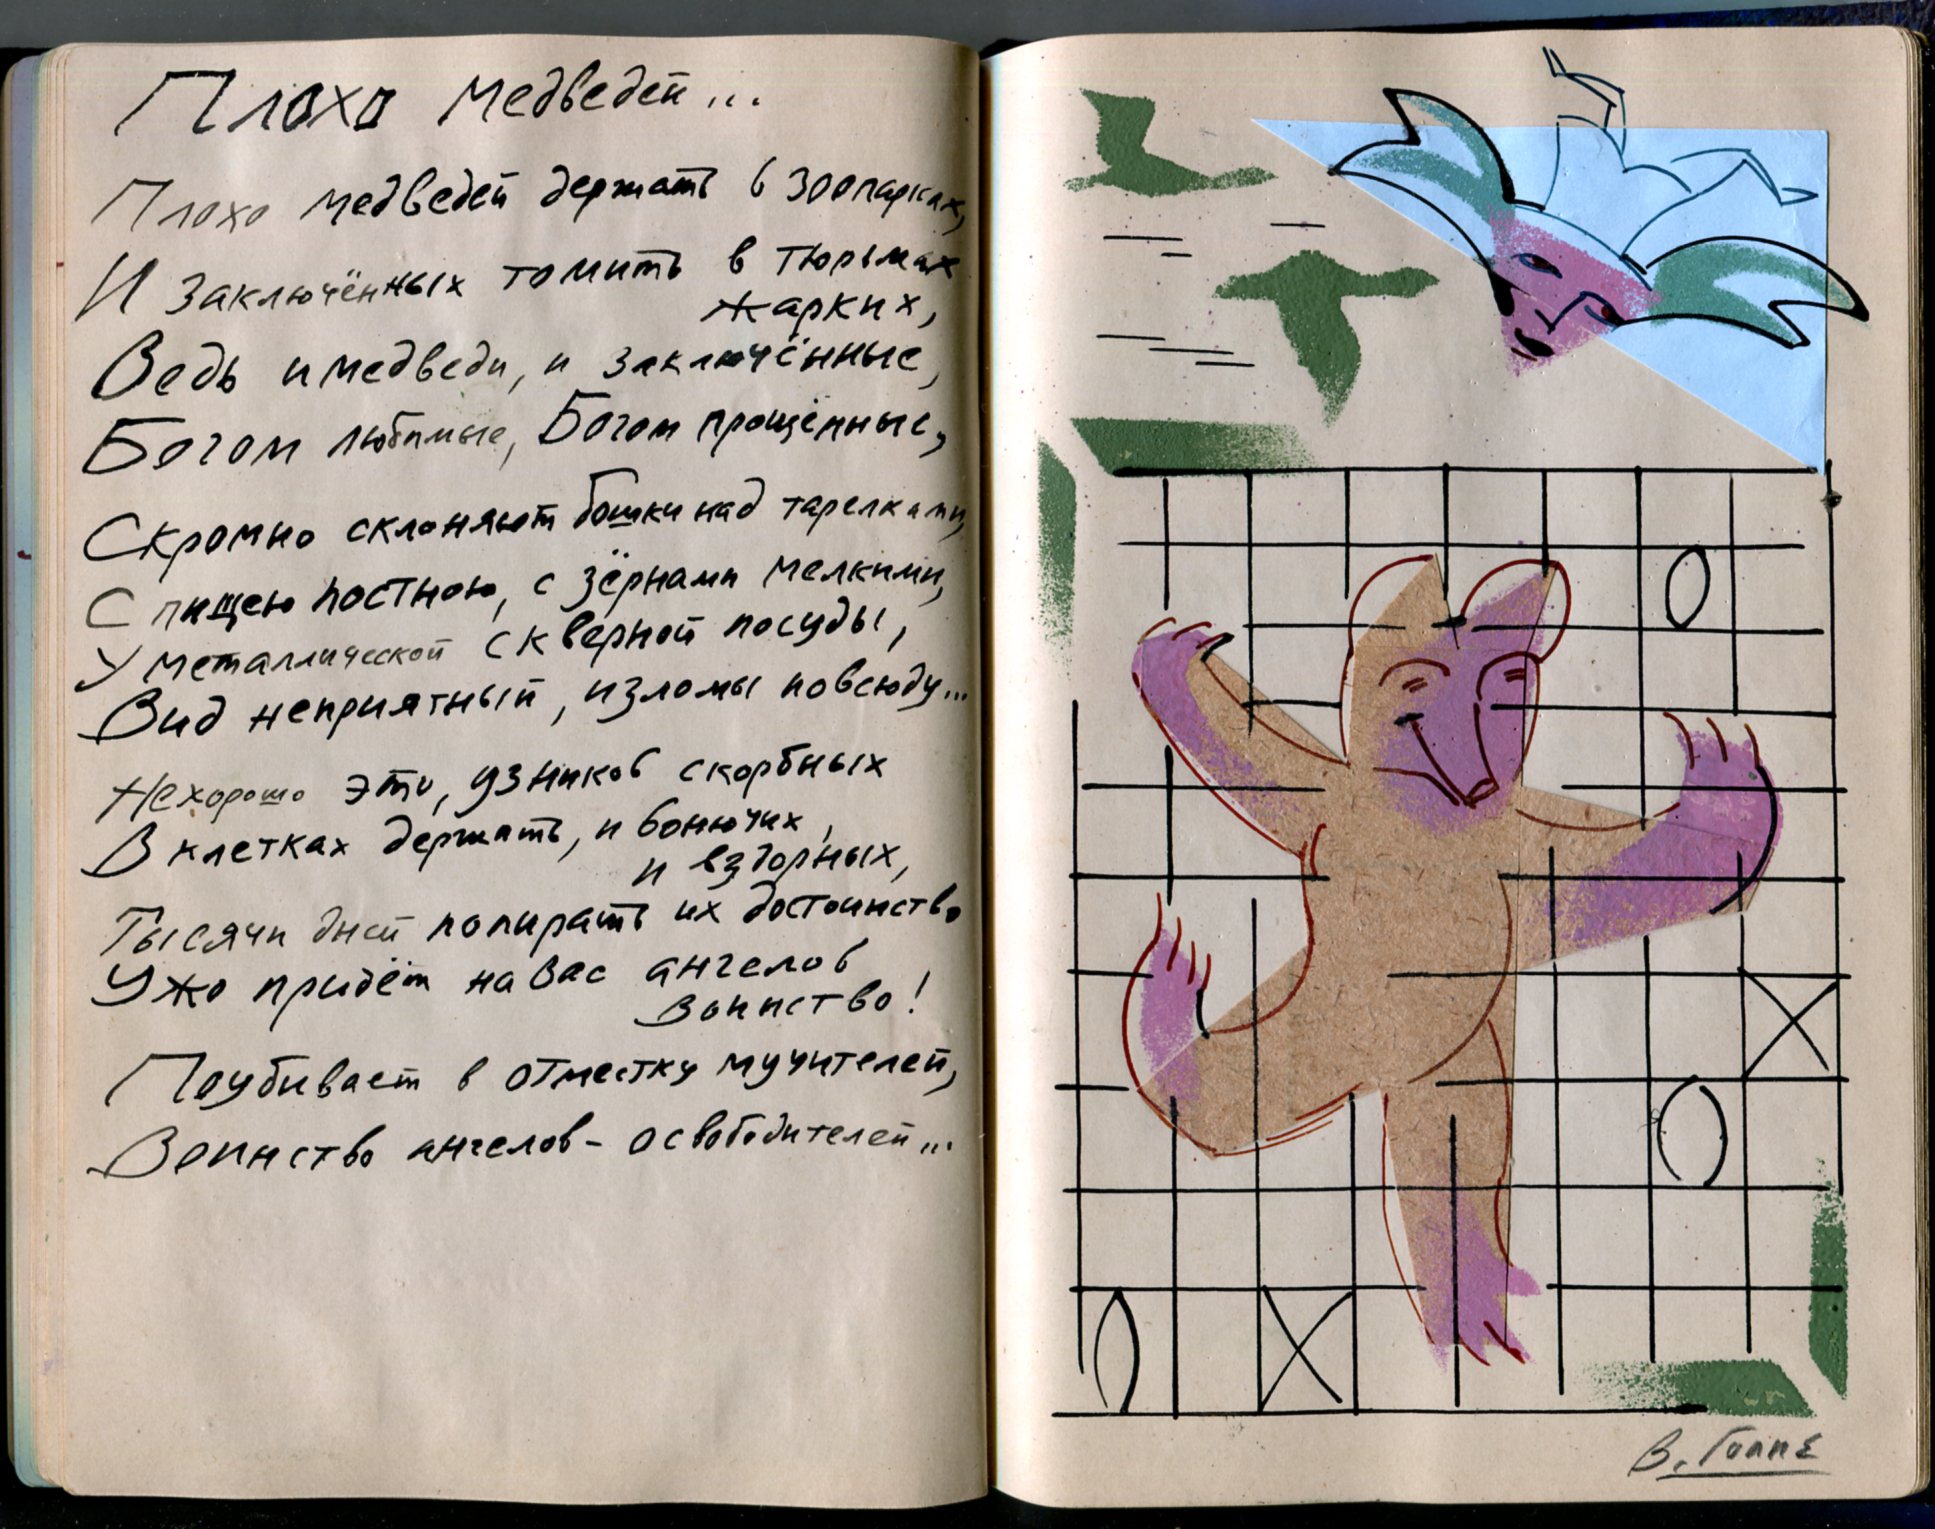 Плохо медведей...
Плохо медведей держать в зоопарках,
И заключённых томить в тюрьмах
жарких,
Ведь и медведи, и заключённые,
Богом любимые, Богом прощённые,
Скромно склоняют бошки над тарелками,
С пищею постною, с зёрнами мелкими,
У металлической скверной посуды,
Вид неприятный, изломы повсюду...
Нехорошо это, узников скорбных
В клетках держать, и вонючих,
и вздорных,
Тысячи дней попирать их достоинство
Ужо придёт на вас ангелов
воинство!
Поубивает в отместку мучителей,
Воинство ангелов - освободителей...
В. Гоппе